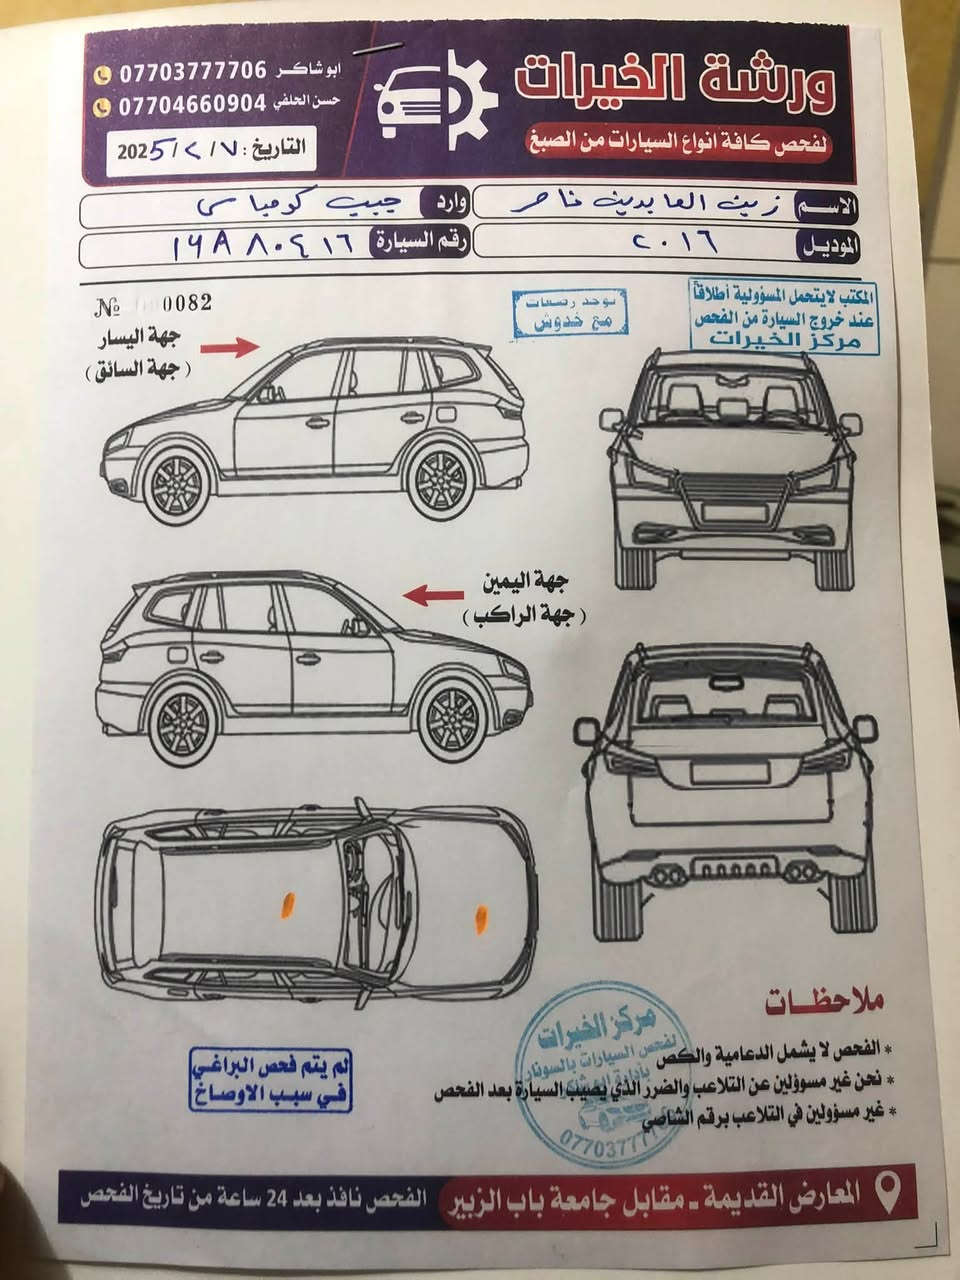 ورشة الخيرات
لفحص كافة انواع السيارات من الصبغ
ابو شاكر 07703777706
حسن الحلفي 07704660904
التاريخ: 2025/٢/٧
الاسم زين العابدين ناصر
وارد جيب كومباسي
الموديل ٢٠١٦
رقم السيارة ١٦ ٨٠٤ A
№ 0082
جهة اليسار
( جهة السائق )
توجد رصعات
مع خدوش
المكتب لايتحمل المسؤولية أطلاقاً
عند خروج السيارة من الفحص
مركز الخيرات
جهة اليمين
( جهة الراكب )
ملاحظات
* الفحص لا يشمل الدعامية والكص
* نحن غير مسوؤلين عن التلاعب والضرر الذي يصيب السيارة بعد الفحص
* غير مسؤولين في التلاعب برقم الشاصي
مركز الخيرات
لفحص السيارات بالسونار
لم يتم فحص البراغي
في سبب الاوصاخ
المعارض القديمة - مقابل جامعة باب الزبير
الفحص نافذ بعد 24 ساعة من تاريخ الفحص